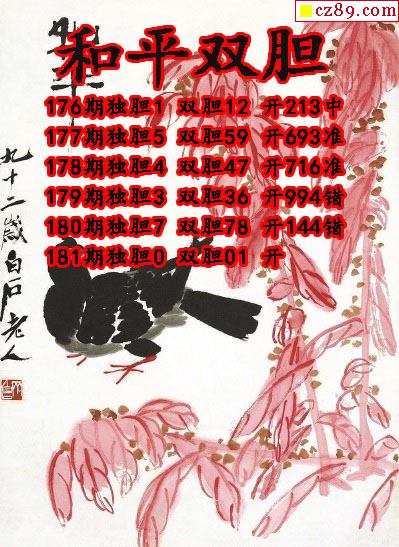 cz89.com
和平双胆
176期独胆1 双胆12 开213中
177期独胆5 双胆59 开693准
178期独胆4 双胆47 开716准
179期独胆3 双胆36 开994错
180期独胆7 双胆78 开144错
181期独胆0 双胆01 开
九十二岁白石老人